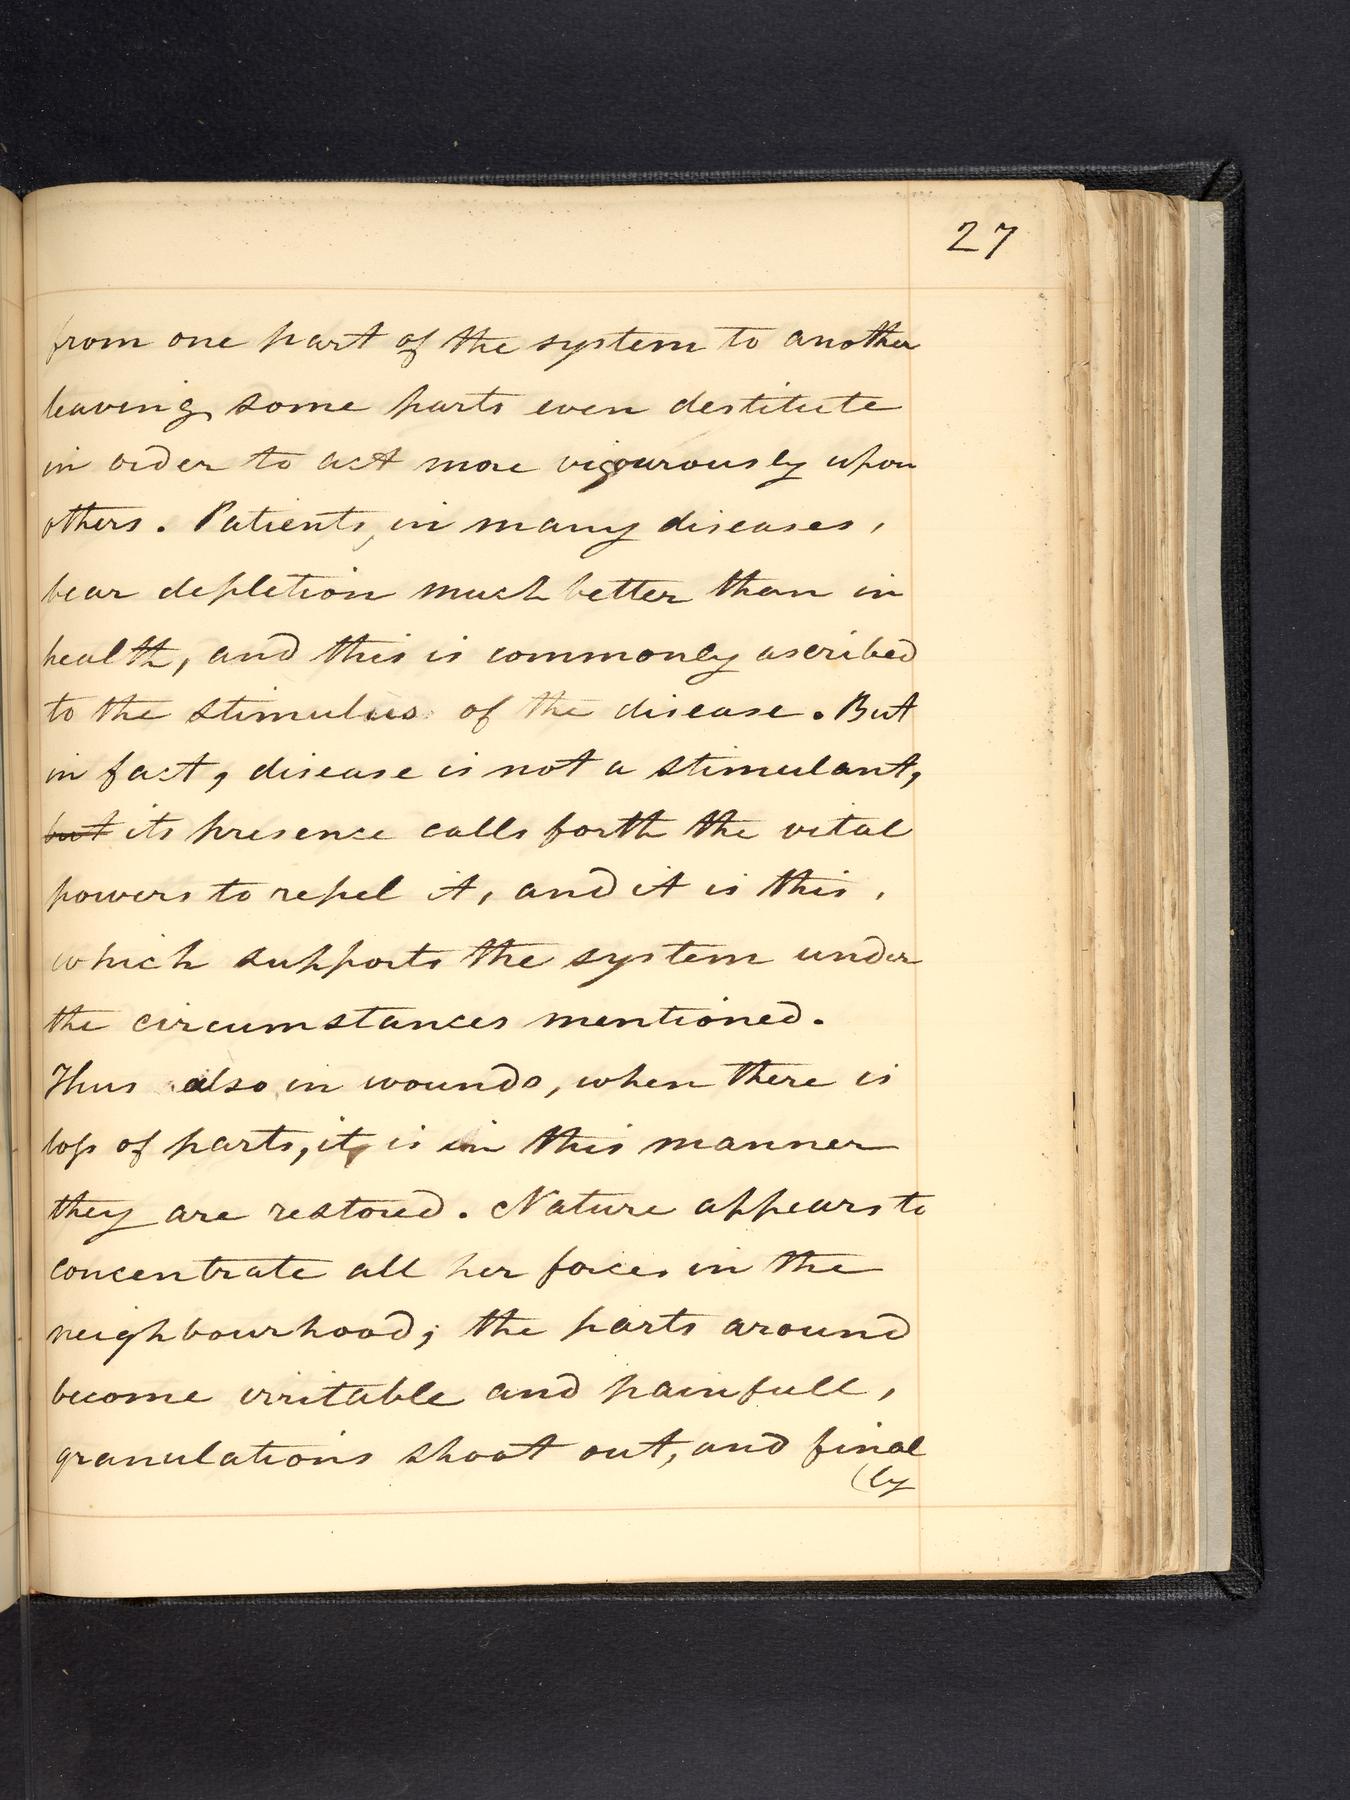 27
from one part of the system to another
leaving some parts even destitute
in order to act more vigourously upon
others. Patients, in many diseases,
bear depletion much better than in
health, and this is commonly ascribed
to the stimulus of the disease. But
in fact, disease is not a stimulant,
but its presence calls forth the vital
powers to repel it, and it is this,
which supports the system under
the circumstances mentioned.
Thus also in wounds, when there is
loss of parts, it is in this manner
they are restored. Nature appears to
concentrate all her forces in the
neighbourhood; the parts around
become irritable and painfull,
granulations shoot out, and final
(ly